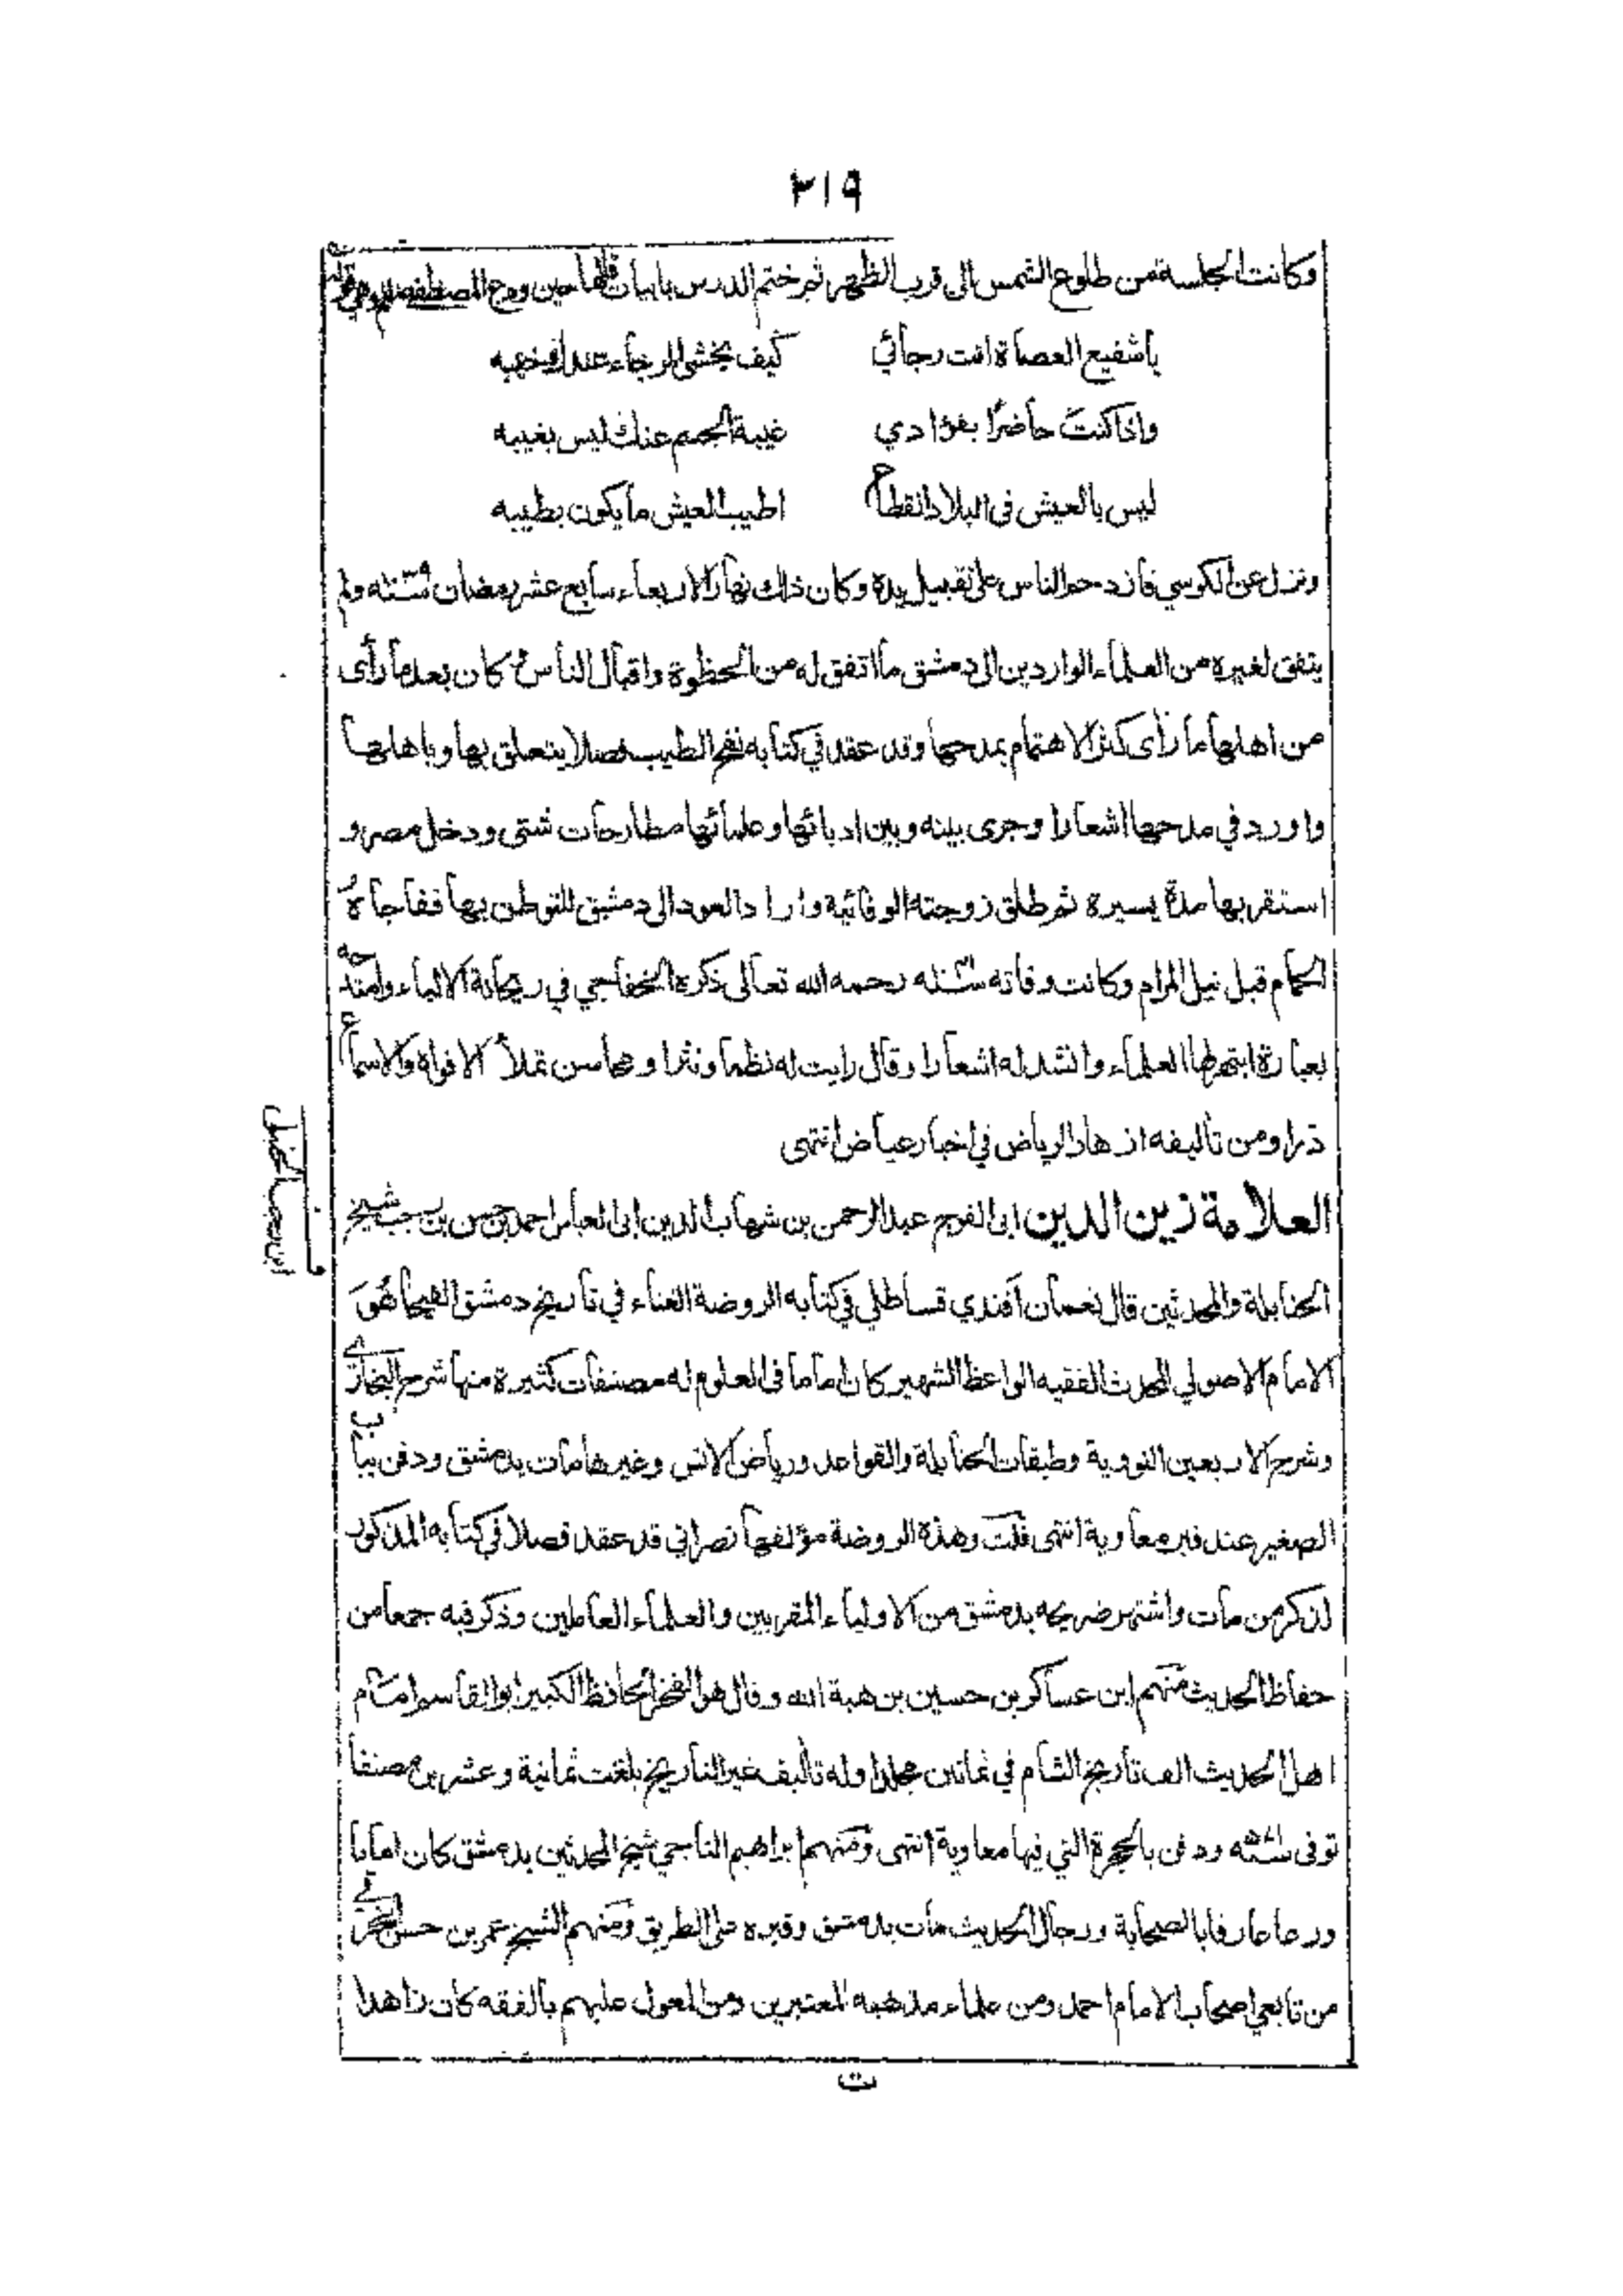 ٣١٩
وكانت الجلسة من طلوع الشمس الى قرب الظهر ثم ختم الدرس بابيات قالها حين ودع المصطفى صللم وهي قوله
يا شفيع العصاة انت رجائي كيف يخشى الرجاء عندك خيبه
واذا كنت حاضرًا بفؤادي غيبة الجسم عنك ليس بغيبه
ليس بالعيش في البلاد انقطاع اطيب العيش ما يكون بطيبه
ونزل عن الكرسي فازدحم الناس على تقبيل يده وكان ذلك نهار الاربعاء سابع عشر رمضان ولم
يتفق لغيره من العلماء الواردين الى دمشق ما اتفق له من الحظوة واقبال الناس كان بعد ما رأى
من اهلها ما رأى كثر الاهتمام بمدحها وقد عقد في كتابه نفح الطيب فصلا يتعلق بها وباهلها
واورد في مدحها اشعارا وجرى بينه وبين ادبائها وعلمائها مطارحات شتى ودخل مصر و
استقر بها مدة يسيرة ثم طلق زوجته الوفائية واراد العود الى دمشق للتوطن بها ففاجاهُ
الحمام قبل نيل المرام وكانت وفاته رحمه الله تعالى ذكره الخفاجي في ريحانة الالباء وامتدحه
بعبارة ابتهر لها العلماء وانشد له اشعارا وقال رايت له نظما ونثرا ومحاسن تملأ الافواه والاسماع
درا ومن تأليفه ازهار الرياض في اخبار عياض انتهى
العلامة زين الدين ابى الفرج عبد الرحمن بن شهاب الدين ابى العباس احمد بن حسن بن رجب شيخ
ابن رجب الحنبلي
الحنابلة والمحدثين قال نعمان آفندي قساطلي في كتابه الروضة الغناء في تاريخ دمشق الفيحا هُوَ
الامام الاصولي المحدث الفقيه الواعظ الشهير كان اماما في العلوم له مصنفات كثيرة منها شرح البخاري
وشرح الاربعين النووية وطبقات الحنابلة والقواعد ورياض الانس وغيرها مات بدمشق ودفن بباب
الصغير عند قبر معاوية انتهى قلت وهذه الروضة مؤلفها نصراني قد عقد فصلا في كتابه المذكور
لذكر من مات واشتهر ضريحه بدمشق من الاولياء المقربين والعلماء العاملين وذكر فيه جمعا من
حفاظ الحديث منهم ابن عساكر بن حسين بن هبة الله وقال هو الفخر الحافظ الكبير ابو القاسم امام
اهل الحديث الف تاريخ الشام في ثمانين مجلدا وله تأليف غير التاريخ بلغت ثمانية وعشرين مصنفا
توفى ودفن بالحجرة التي فيها معاوية انتهى ومنهم ابراهيم الناجي شيخ المحدثين بدمشق كان اماما
ورعا عارفا بالصحابة ورجال الحديث مات بدمشق وقبره على الطريق ومنهم الشيخ عمر بن حسن الخرقي
من تابعي اصحاب الامام احمد ومن علماء مذهبه المعتبرين ومن المعول عليهم بالفقه كان زاهدا
ت